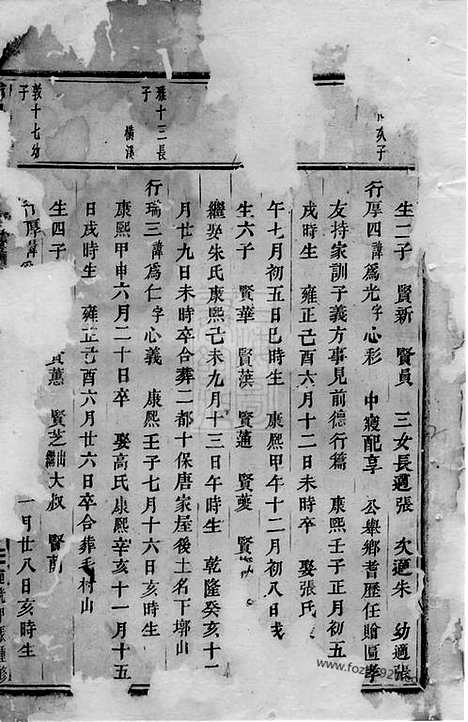 亥子
生二子 賢新 賢貞 三女長適張 次適朱 幼適張
行厚四諱為光字心彩 中寢配享 公舉鄉耆歷任贈匾孝
友持家訓子義方事見前德行篇 康熙壬子正月初五
戌時生 雍正己酉六月十二日未時卒 娶張氏
午七月初五日巳時生 康熙甲午十二月初八日戌
生六子 賢華 賢蓮 賢
雅十三長
子
橫溪
繼娶朱氏康熙己未九月十三日午時生 乾隆癸亥十一
月廿九日未時卒合葬二都十保唐家屋後土名下墎山
行瑞三諱為仁字心義 康熙壬子七月十六日亥時生
康熙甲申六月二十日卒 娶高氏康熙辛亥十一月十五
日戌時生 雍正己酉六月廿六日卒合葬毛村山
敦十七幼
子
生四子 蕙 賢芝出繼大叔 賢
行厚 諱 一月廿八日亥時生